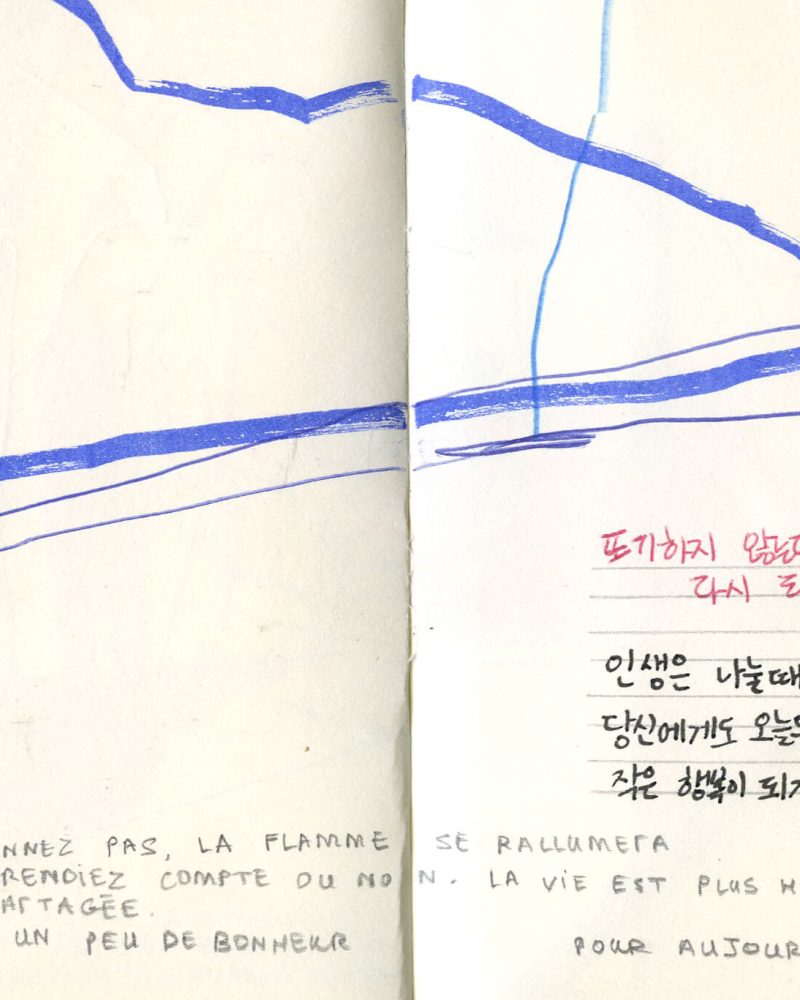 포기하지
다시
인생은 나눌때
당신에게도
작은 행복이
NNEZ PAS, LA FLAMME SE RALLUMERA
RENDIEZ COMPTE OU NON. LA VIE EST PLUS H
ARTAGÉE.
UN PEU DE BONHEUR POUR AUJOUR